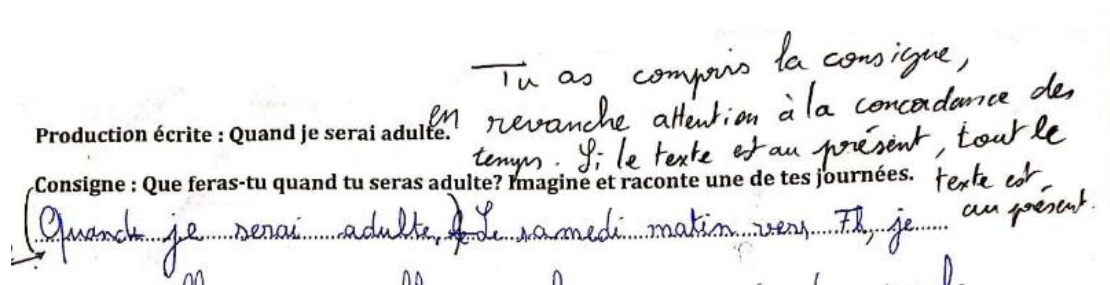 Tu as compris la consigne,
en revanche attention à la concordance des
temps. Si le texte est au présent, tout le
texte est
au présent.
Production écrite : Quand je serai adulte.
Consigne : Que feras-tu quand tu seras adulte? Imagine et raconte une de tes journées.
Quand je serai adulte, Le samedi matin vers 7h, je